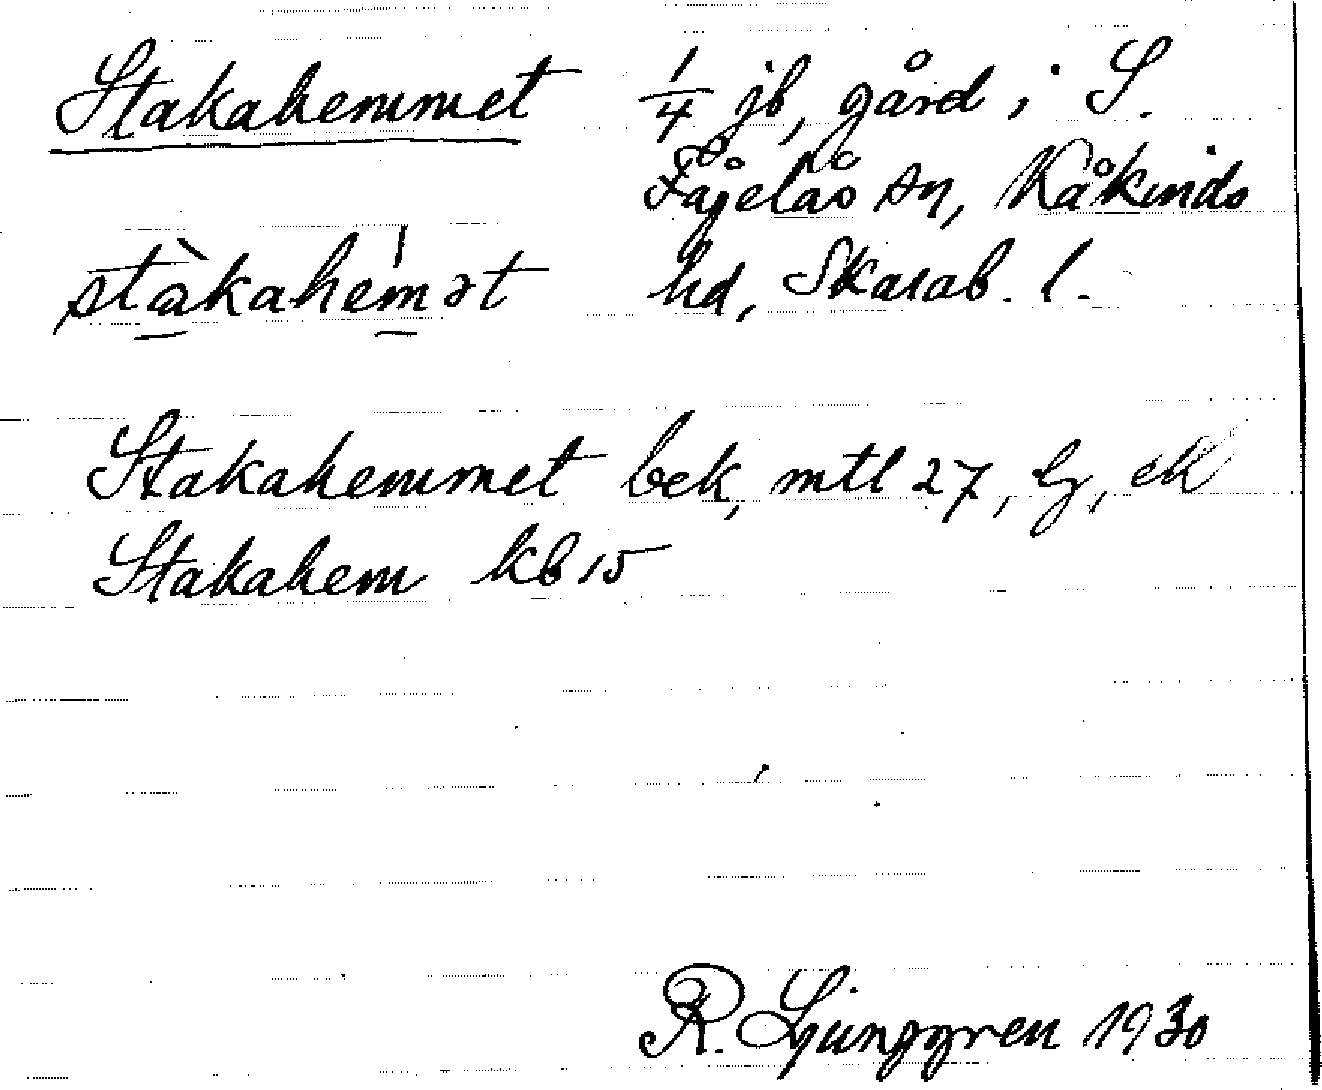 Stakahemmet 1/4 jb, gård i S.
Fågelås sn, Kåkinds
stàkahemət hd, Skarab. l.
Stakahemmet bek, mtl 27, lg, ek
Stakahem kb 15
R. Ljunggren 1930